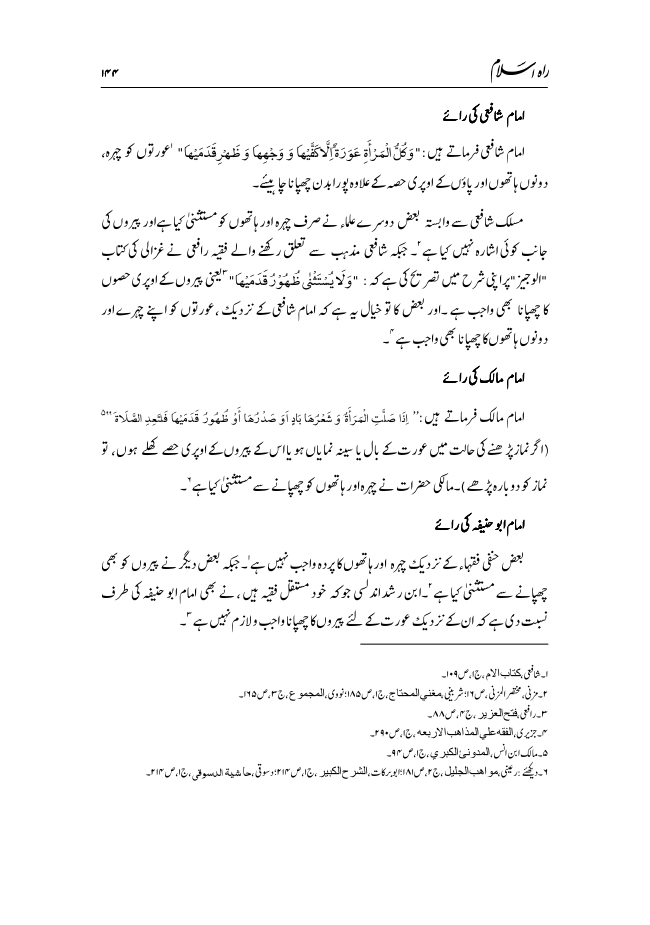 راہ اسلام ۱۴۴
امام شافعی کی رائے
امام شافعی فرماتے ہیں: "وَكُلُّ الْمَرْأَةِ عَوْرَةٌ إِلَّا كَفَّيْهَا وَ وَجْهِهَا وَ ظَهْرِ قَدَمَيْهَا" ۱عورتوں کو چہرہ،
دونوں ہاتھوں اور پاؤں کے اوپری حصہ کے علاوہ پورا بدن چھپانا چاہیئے۔
مسلک شافعی سے وابستہ بعض دوسرے علماء نے صرف چہرہ اور ہاتھوں کو مستثنیٰ کیا ہے اور پیروں کی
جانب کوئی اشارہ نہیں کیا ہے ۲۔ جبکہ شافعی مذہب سے تعلق رکھنے والے فقیہ رافعی نے غزالی کی کتاب
"الوجیز" پر اپنی شرح میں تصریح کی ہے کہ : "وَلَا يُسْتَثْنٰى ظُهُوْرُ قَدَمَيْهَا" ۳یعنی پیروں کے اوپری حصوں
کا چھپانا بھی واجب ہے ۔اور بعض کا تو خیال یہ ہے کہ امام شافعی کے نزدیک ،عورتوں کو اپنے چہرے اور
دونوں ہاتھوں کا چھپانا بھی واجب ہے ۴۔
امام مالک کی رائے
امام مالک فرماتے ہیں:" اِذَا صَلَّتِ الْمَرأَةُ وَ شَعْرُهَا بَادٍ اَوْ صَدْرُهَا أَوْ ظُهُورُ قَدَمَيْهَا فَلتُعِدِ الصَّلَاةَ "۵
(اگر نماز پڑھنے کی حالت میں عورت کے بال یا سینہ نمایاں ہو یا اس کے پیروں کے اوپری حصے کھلے ہوں، تو
نماز کو دوبارہ پڑھے)۔مالکی حضرات نے چہرہ اور ہاتھوں کو چھپانے سے مستثنیٰ کیا ہے ۶۔
امام ابو حنیفہ کی رائے
بعض حنفی فقہاء کے نزدیک چہرہ اور ہاتھوں کا پردہ واجب نہیں ہے ۱۔ جبکہ بعض دیگر نے پیروں کو بھی
چھپانے سے مستثنیٰ کیا ہے ۲۔ابن رشد اندلسی جو کہ خود مستقل فقیہ ہیں، نے بھی امام ابو حنیفہ کی طرف
نسبت دی ہے کہ ان کے نزدیک عورت کے لئے پیروں کا چھپانا واجب و لازم نہیں ہے ۳۔
۱۔شافعی، کتاب الام، ج۱، ص۱۰۹۔
۲۔مزنی، مختصر المزنی، ص۱۶؛ شربینی، مغنی المحتاج، ج۱، ص۱۸۵؛ نووی، المجموع، ج۳، ص۱۶۵۔
۳۔رافعی، فتح العزیز، ج۴، ص۸۸۔
۴۔جزیری، الفقه علي المذاهب الاربعه، ج۱، ص۲۹۰۔
۵۔مالک ابن انس، المدونۃ الکبری، ج۱، ص۹۴۔
۶۔دیکھئے :رعینی، مواهب الجلیل، ج۲، ص۱۸۱؛ ابو برکات، الشرح الکبیر، ج۱، ص۲۱۴؛ دسوقی، حاشیة الدسوقی، ج۱، ص۲۱۴۔